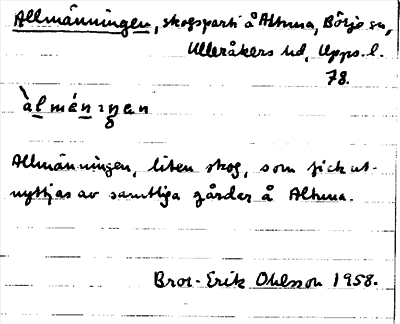 Allmänningen, skogsparti å Åltuna, Börje sn,
Ulleråkers hd, Upps. l.
78.
àlmén
Allmänningen, liten skog, som fick ut-
nyttjas av samtliga gårdar å Altuna.
Bror-Erik Ohlsson 1958.